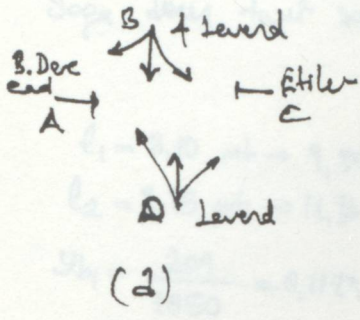 B 4 Levend
B. Dere
cad
A
Etiler
C
D Levend
(d)